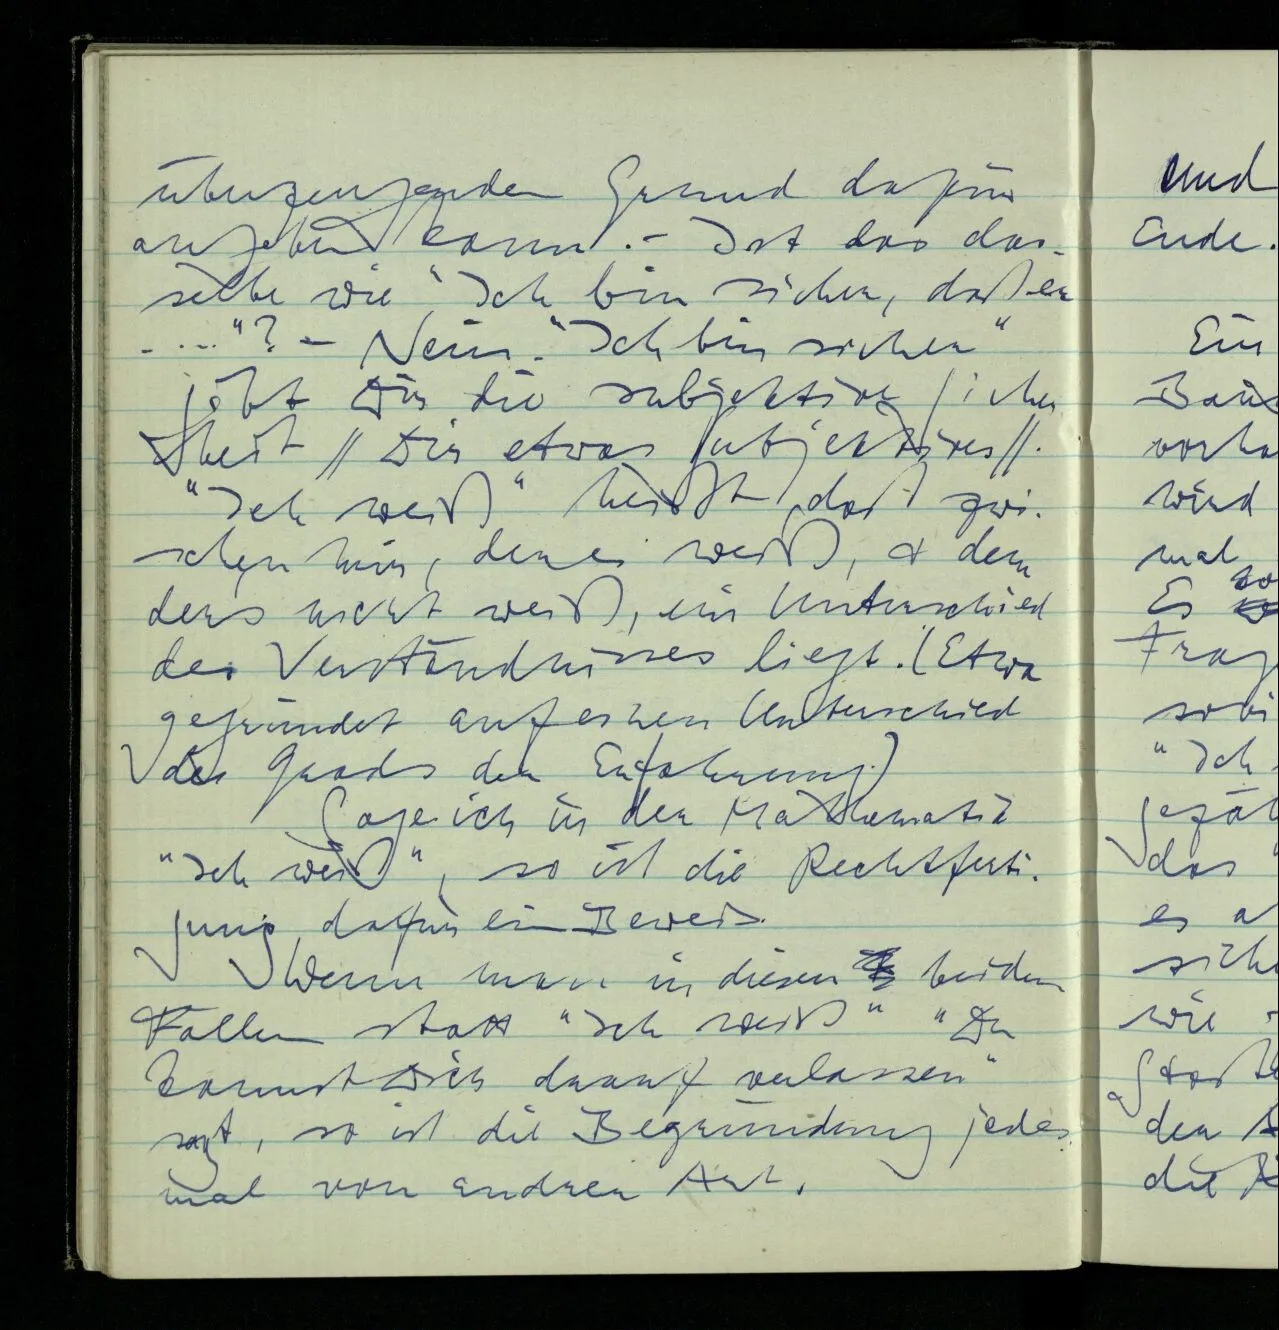 überzeugenden Grund dafür
angeben kann. – Ist das das-
selbe wie "Ich bin sicher, daß er
....."? – Nein. "Ich bin sicher"
gibt Dir die subjektive Sicher
heit // Dir etwas Subjektives //.
"Ich weiß" heißt, daß zwi-
schen mir, der es weiß, & dem
ders nicht weiß, ein Unterschied
des Verständnisses liegt. (Etwa
gegründet auf einen Unterschied
des Grads der Erfahrung.)
Sage ich in der Mathematik
"Ich weiß", so ist die Rechtferti-
gung dafür ein Beweis.
Wenn man in diesen beiden
Fällen statt "Ich weiß" "Du
kannst Dich darauf verlassen"
sagt, so ist die Begründung jedes
mal von andrer Art.
und
Ende.
Ein
wird
mal
Es
"Ich
das
es
wie
der
die